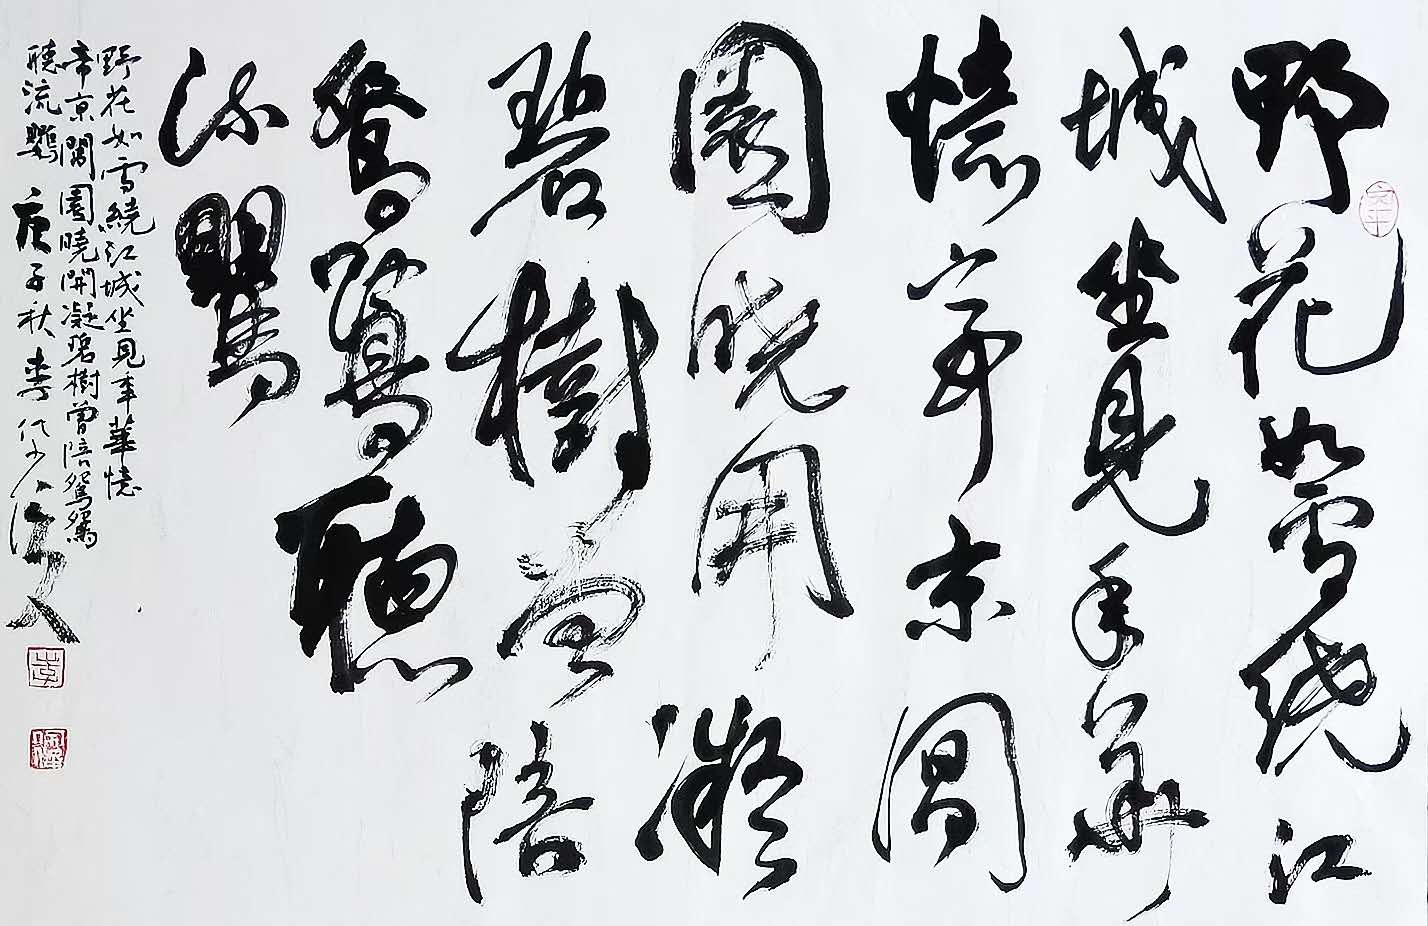 野花如雪绕江
城坐見年華
憶帝京閬
園曉開凝
碧樹曾陪
鴛鷺聽
流鶯
野花如雪繞江城坐見年華憶
帝京閬園曉開凝碧樹曾陪鴛鷺
聽流鶯 庚子秋 李